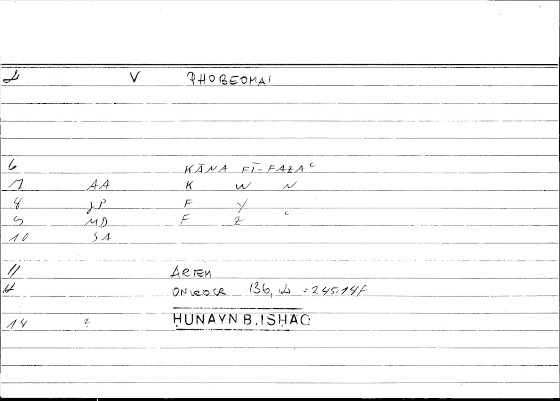 2 V PHOBEOMAI
6 KĀNA FĪ-FAZAᶜ
7 AA K W N
8 JP F Y
9 MD F Z ᶜ
10 SA
11 ARTEM
ONIROCR 136, = 245.14f
14 ? HUNAYN B. ISHAQ